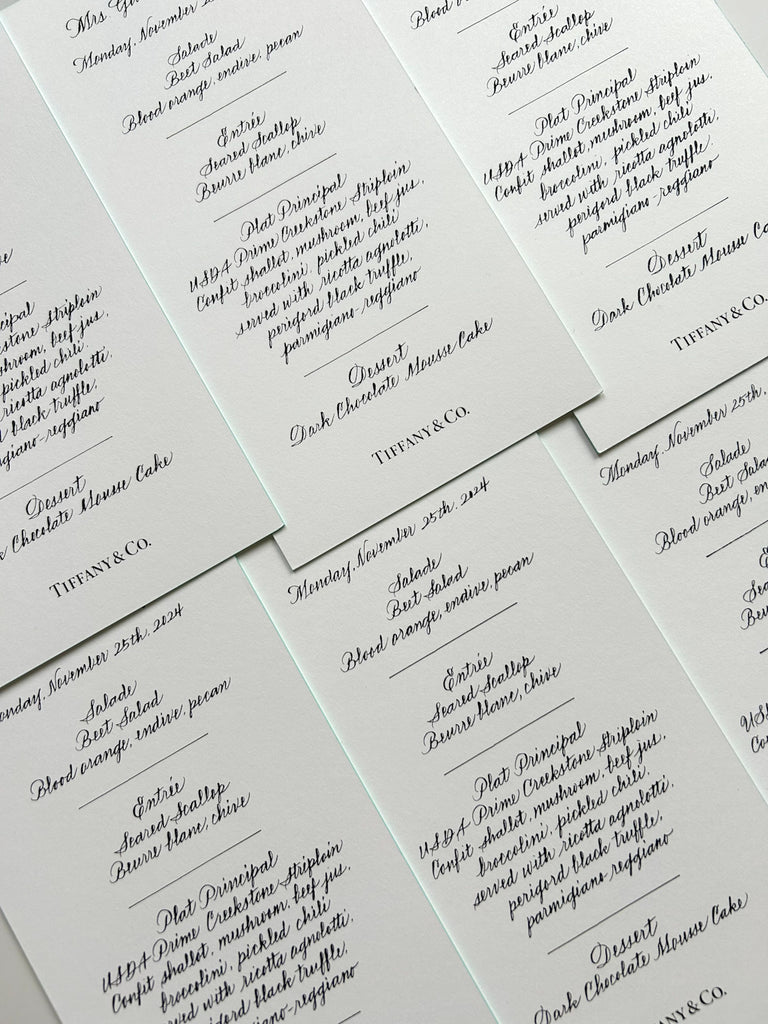 Striploin
beef jus,
pickled chili
ricotta agnolotti,
black truffle,
reggiano
Dessert
Chocolate Mousse Cake
TIFFANY & CO.
Mrs
Monday, November
Salade
Beet Salad
Blood orange, endive, pecan
Entrée
Seared Scallop
Beurre blanc, chive
Plat Principal
USDA Prime Creekstone Striploin
Confit shallot, mushroom, beef jus,
broccolini, pickled chili
served with ricotta agnolotti,
perigord black truffle,
parmigiano-reggiano
Dessert
Dark Chocolate Mousse Cake
TIFFANY & CO.
Blood
Entrée
Seared Scallop
Beurre blanc, chive
Plat Principal
USDA Prime Creekstone Striploin
Confit shallot, mushroom, beef jus,
broccolini, pickled chili
served with ricotta agnolotti,
perigord black truffle,
parmigiano-reggiano
Dessert
Dark Chocolate Mousse Ca
TIFFANY & CO.
onday, November 25th, 2024
Salade
Beet Salad
Blood orange, endive, pecan
Entrée
Seared Scallop
Beurre blanc, chive
Plat Principal
USDA Prime Creekstone Striploin
Confit shallot, mushroom, beef jus,
broccolini, pickled chili
served with ricotta agnolotti,
black truffle,
reggiano
Monday, November 25th, 2024
Salade
Beet Salad
Blood orange, endive, pecan
Entrée
Seared Scallop
Beurre blanc, chive
Plat Principal
USDA Prime Creekstone Striploin
Confit shallot, mushroom, beef jus,
broccolini, pickled chili
served with ricotta agnolotti,
perigord black truffle,
parmigiano-reggiano
Dessert
Dark Chocolate Mousse Cake
FANY & CO.
Monday, November 25th,
Salade
Beet Sala
Blood orange, en